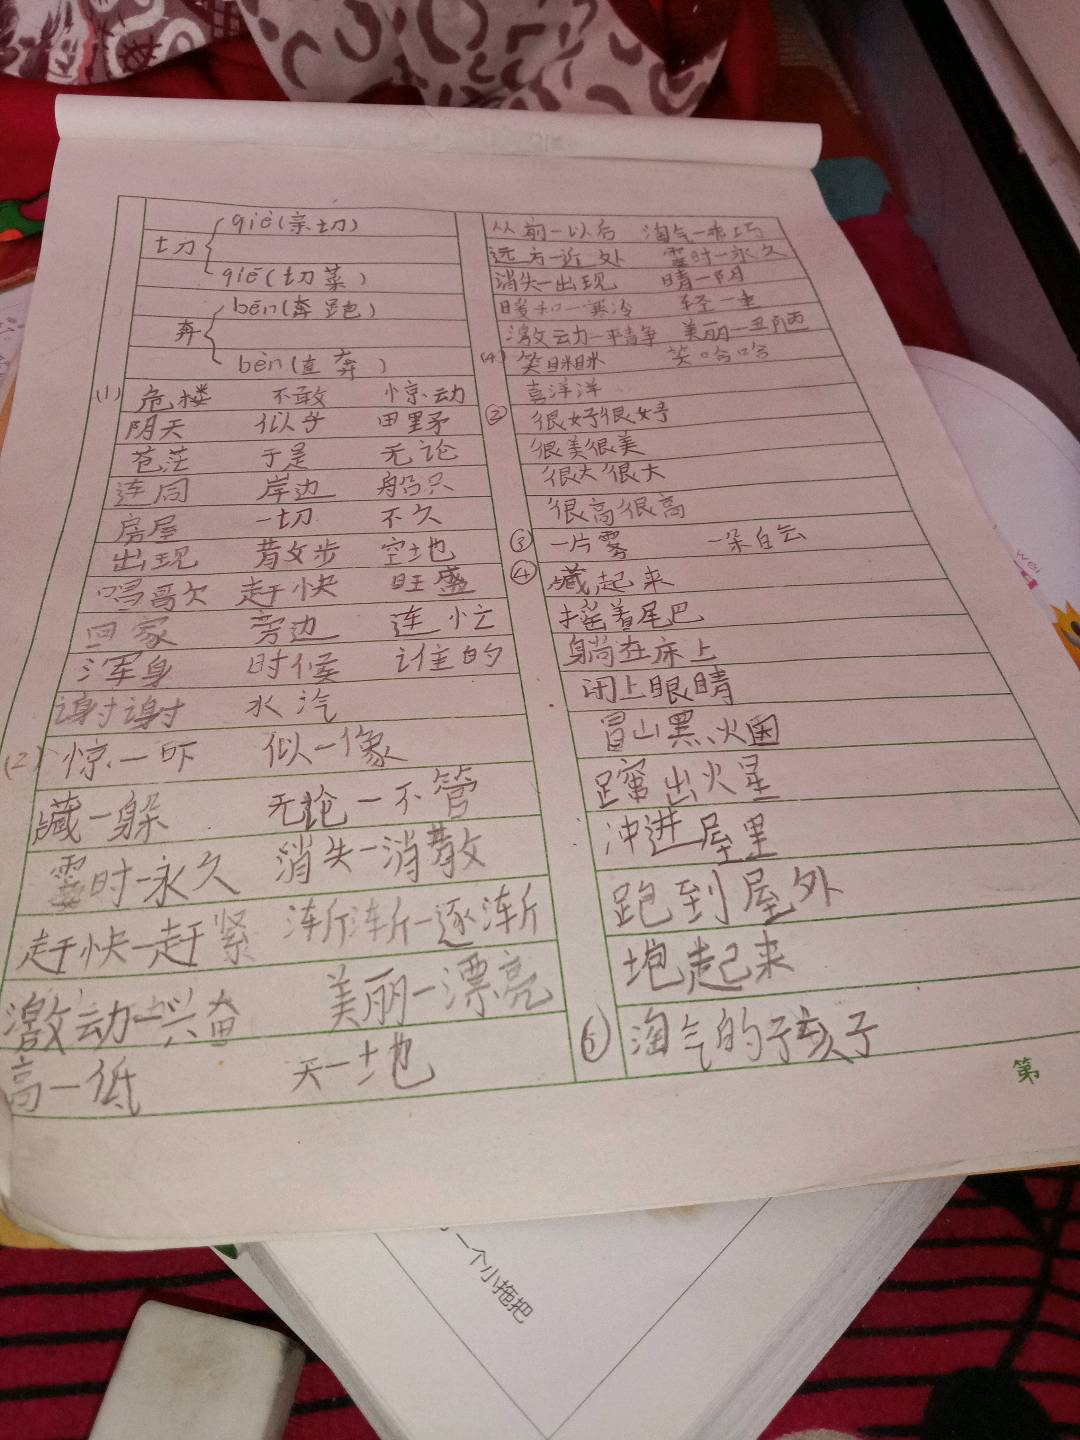 qiè(亲切)
切
qiē(切菜)
bēn(奔跑)
奔
bèn(直奔)
(1) 危楼 不敢 惊动
阴天 似乎 田野
苍茫 于是 无论
连同 岸边 船只
房屋 一切 不久
出现 散步 空地
唱歌 赶快 旺盛
回家 旁边 连忙
浑身 时候 谁的
谢谢 水汽
(2) 惊一吓 似一像
藏一躲 无论一不管
霎时一永久 消失一消散
赶快一赶紧 渐渐一逐渐
激动一兴奋 美丽一漂亮
高一低 天一地
从前一以后 淘气一乖巧
远方一近处 霎时一永久
消失一出现 晴一阴
暖和一寒冷 轻一重
激动一平静 美丽一丑陋
(4) 笑眯眯 笑哈哈
喜洋洋
② 很好很好
很美很美
很大很大
很高很高
③ 一片雾 一朵白云
④ 藏起来
摇着尾巴
躺在床上
闭上眼睛
冒山黑火困
蹿出火星
冲进屋里
跑到屋外
抱起来
⑤ 淘气的孩子
第
一个小拖把